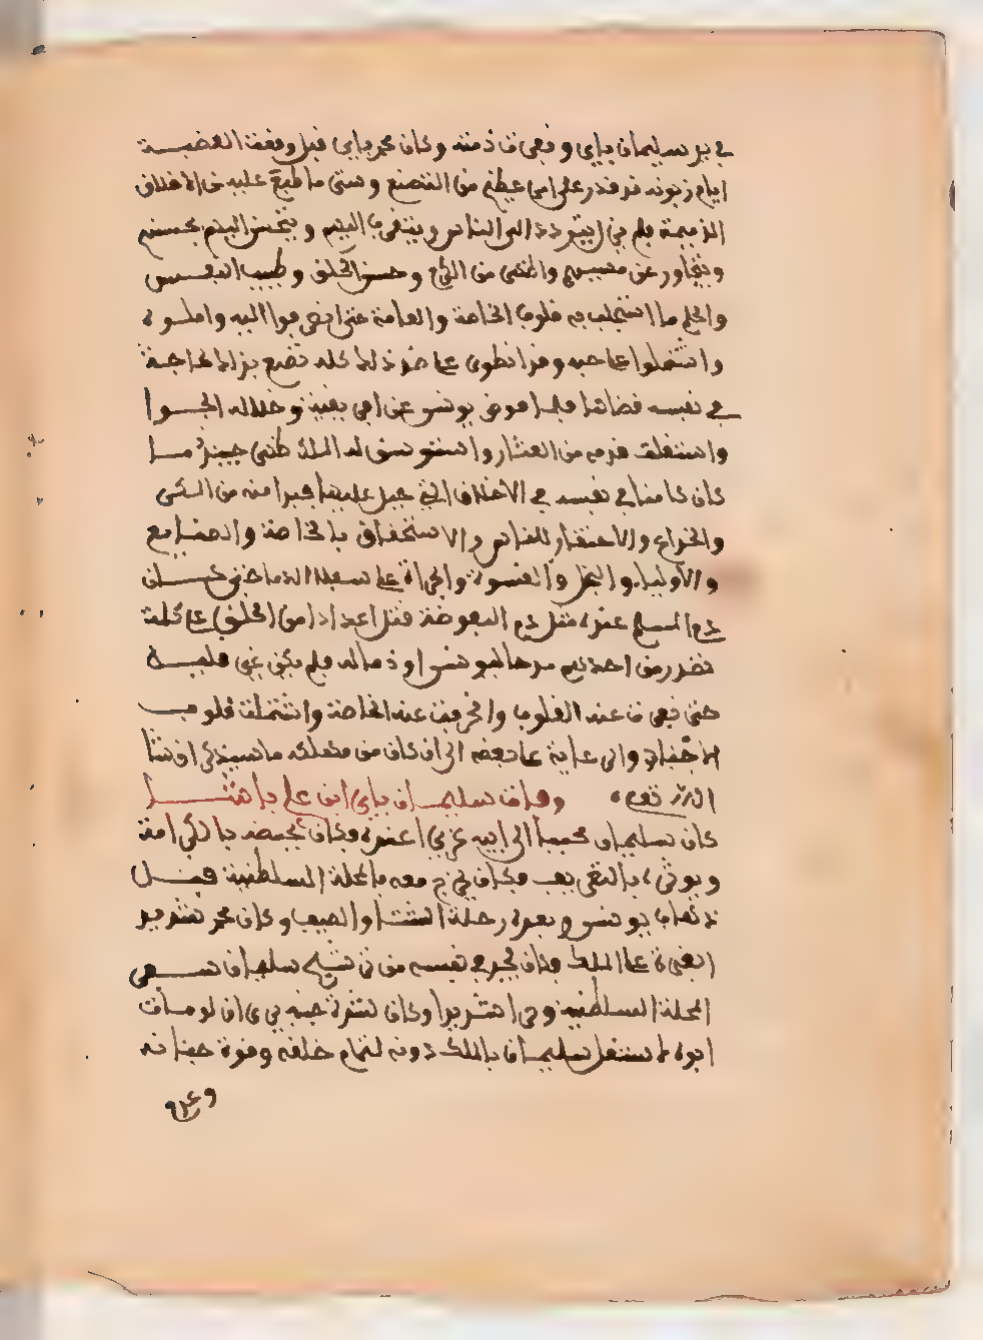 في بر سليمان باي وبقي في ذمته وكان محمد باي قبل وقعة القصبة
ايام زيونه قد قدر على امر عظيم من التصنع وستر ما طبع عليه من الاخلاق
الذميمة فلم يزل يتودد الى الناس ويتقرب اليهم ويحسن اليهم محسنهم
ويتجاوز عن مسيئهم واظهر من الكرم وحسن الخلق وطيب النفس
والحلم ما استجلب به قلوب الخاصة والعامة حتى انصرفوا اليه واملوه
واشتملوا على حبه وقد انطوى على ضد ذلك كله تصنع بذلك لحاجة
في نفسه قضاها فلما قوض يونس عن امر بغيه وخلاله الجوا
واستقلت قدمه من العثار واستوسق له الملك ظهر حينئذ ما
كان كامنا في نفسه من الاخلاق التي جبل عليها فبدا منه من المكر
والخداع والاحتقار للناس والاستخفاف بالخاصة والصنايع
والاوليا والبخل والقسوة والجراة على سفك الدما حتى كان
دم المسلم عنده مثل دم البعوضة فقتل اعدادا من الخلق على كلمة
تصدر من احدهم مدحا ليونس او ذما له فلم يكن غير قليل
حتى نفرت عنه القلوب وانحرفت عنه الخاصة واشتملت قلوب
الاجناد والرعاية على بغضه الى ان كان من مهلكه ما سيذكر ان شا
الله تعلى وفات سليمان باي ابن علي باشا
كان سليمان محببا الى ابيه عزيزا عنده وكان يخصه بالكرامة
ويوثره بالتقريب فكان يخرج معه بالمحلة السلطنية قبل
ذهاب يونس وبعده رحلة الشتا والصيف وكان محمد شديد
الغيرة على الملك فكان يجد في نفسه من ترشيح سليمان لسفر
المحلة السلطنية وجدا شديدا وكان لشدة جبنه يرى ان لو مات
ابوه لاستقل سليمان بالملك دونه لتمام خلقه وقوة جنانه
وعزه